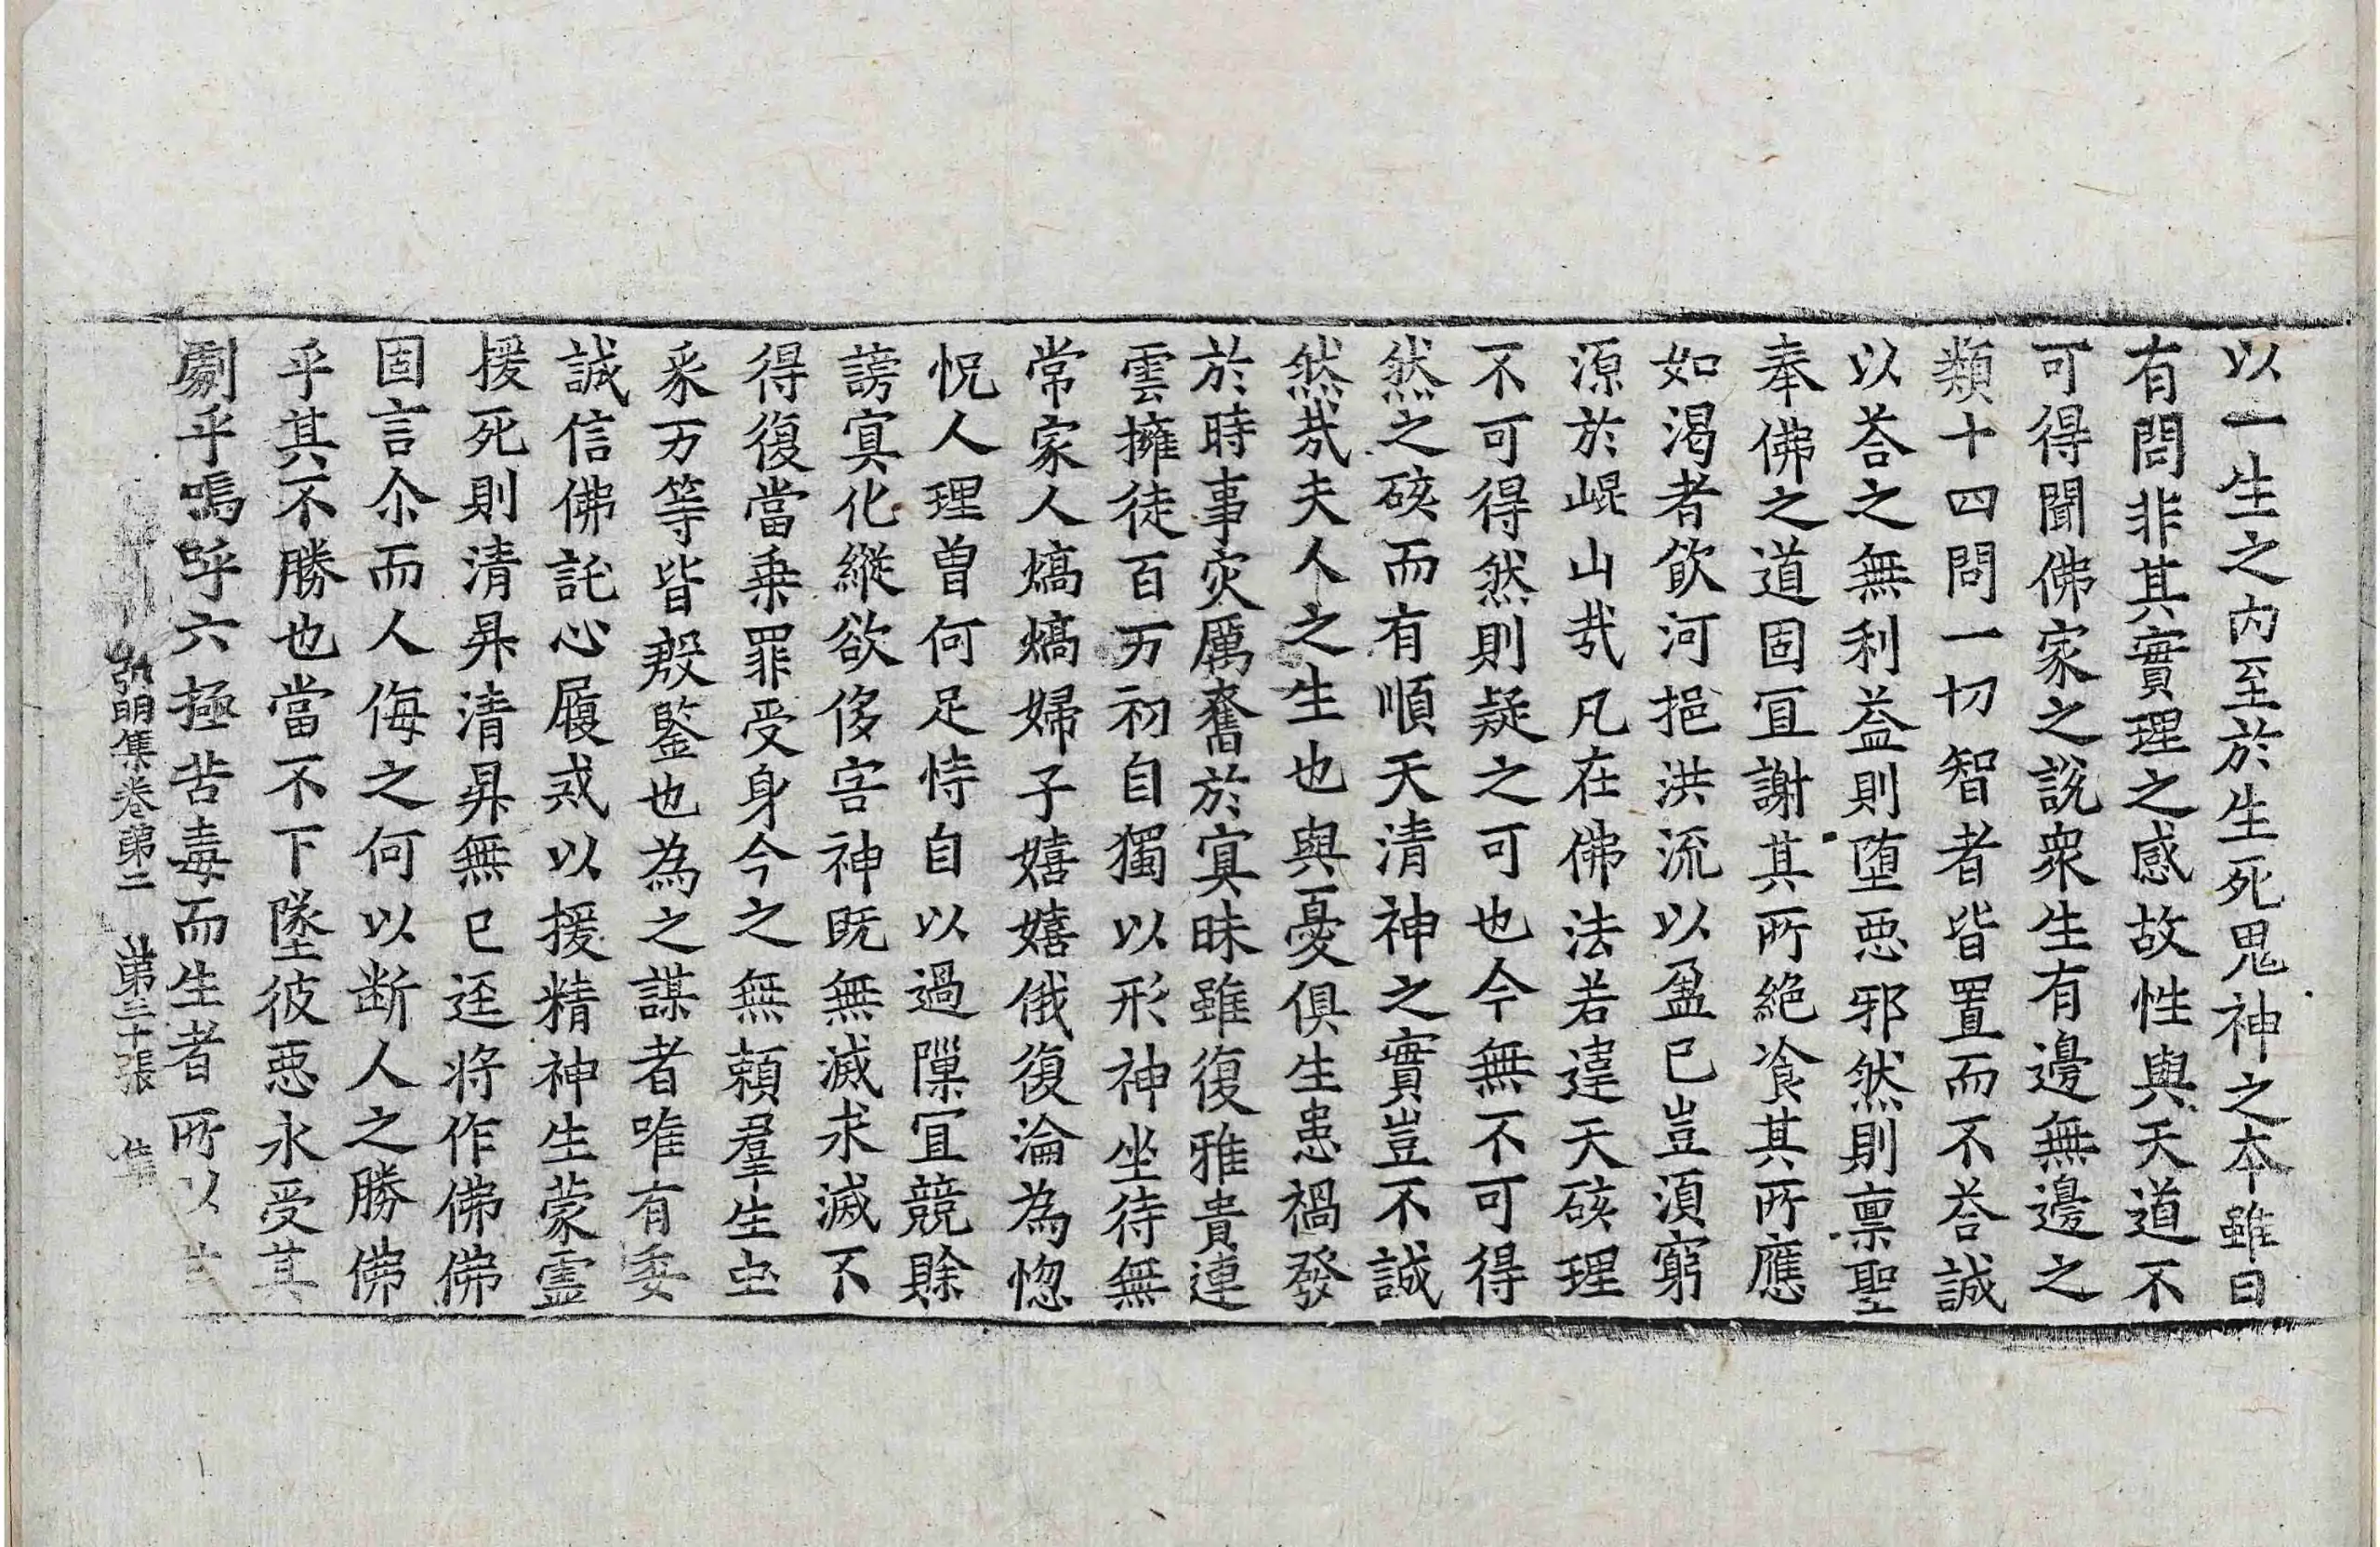 以一生之内至於生死鬼神之本雖曰
有問非其實理之感故性與天道不
可得聞佛家之說衆生有邊無邊之
類十四問一切智者皆置而不荅誠
以荅之無利益則墮惡邪然則禀聖
奉佛之道固冝謝其所絶飡其所應
如渴者飲河挹洪流以盈已豈須窮
源於崐山㢤凡在佛法若違天硋理
不可得然則疑之可也今無不可得
然之硋而有順天清神之實豈不誠
然㢤夫人之生也與憂俱生患禍發
於時事灾厲奮於㝠昧雖復雅貴連
雲擁徒百万初自獨以形神坐待無
常家人熇熇婦子嬉嬉俄復淪為惚
怳人理曽何足恃自以過隟冝競賖
謗㝠化縱欲侈害神既無滅求滅不
得復當乗罪受身今之無頼羣生䖝
豕万等皆殷鍳也為之謀者唯有委
誠信佛託心履戒以援精神生蒙靈
援死則清昇清昇無已逕将作佛佛
固言尒而人侮之何以断人之勝佛
乎其不勝也當不下墜彼惡永受其
劇乎嗚呼六極苦毒而生者所以生
弘明集卷第二 第三十張 集